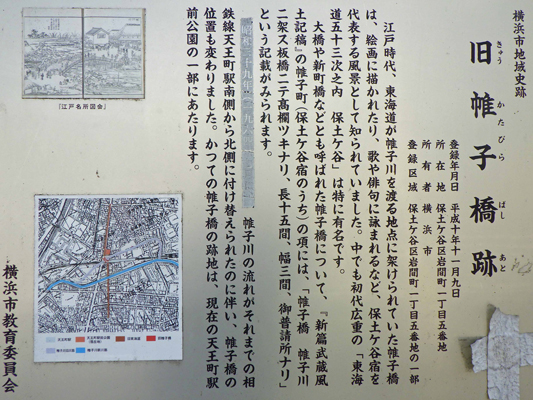 横浜市地域史跡
旧帷子橋跡
きゅう かたびら ばし あと
登録年月日 平成十年十一月九日
所在地 保土ケ谷区岩間町一丁目五番地
所有者 横浜市
登録区域 保土ケ谷区岩間町一丁目五番地の一部
江戸時代、東海道が帷子川を渡る地点に架けられていた帷子橋
は、絵画に描かれたり、歌や俳句に詠まれるなど、保土ケ谷宿を
代表する風景として知られていました。中でも初代広重の「東海
道五十三次之内 保土ケ谷」は特に有名です。
大橋や新町橋などとも呼ばれた帷子橋について、『新篇武蔵風
土記稿』の帷子町(保土ケ谷宿のうち)の項には、「帷子橋 帷子川
ニ架ス板橋ニテ高欄ツキナリ、長十五間、幅三間、御普請所ナリ」
という記載がみられます。
昭和三十九年 帷子川の流れがそれまでの相
鉄線天王町駅南側から北側に付け替えられたのに伴い、帷子橋の
位置も変わりました。かつての帷子橋の跡地は、現在の天王町駅
前公園の一部にあたります。
『江戸名所図会』
横浜市教育委員会